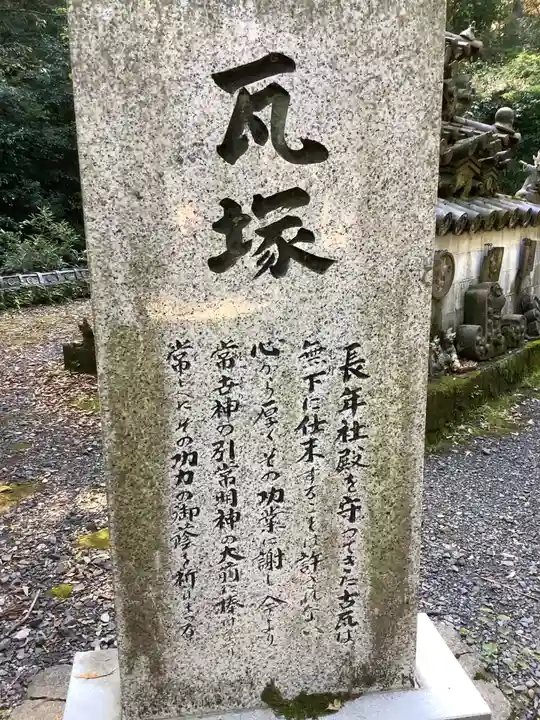 瓦塚
長年社殿を守ってきた古瓦は
無下に仕末することは許されない
心から厚くその功業に謝し 今より
常世神の引常明神の大前に捧げまつり
常しへにその功力の御蔭を祈り